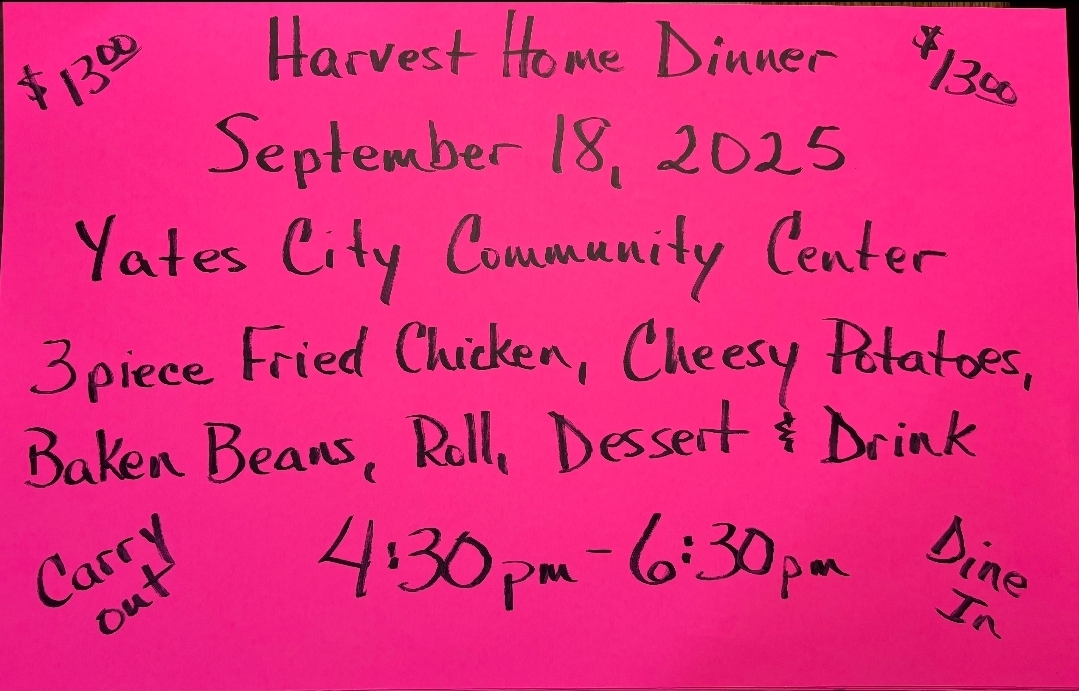 $13.00
Harvest Home Dinner
$13.00
September 18, 2025
Yates City Community Center
3 piece Fried Chicken, Cheesy Potatoes,
Baken Beans, Roll, Dessert & Drink
Carry
out
4:30 pm - 6:30 pm
Dine
In